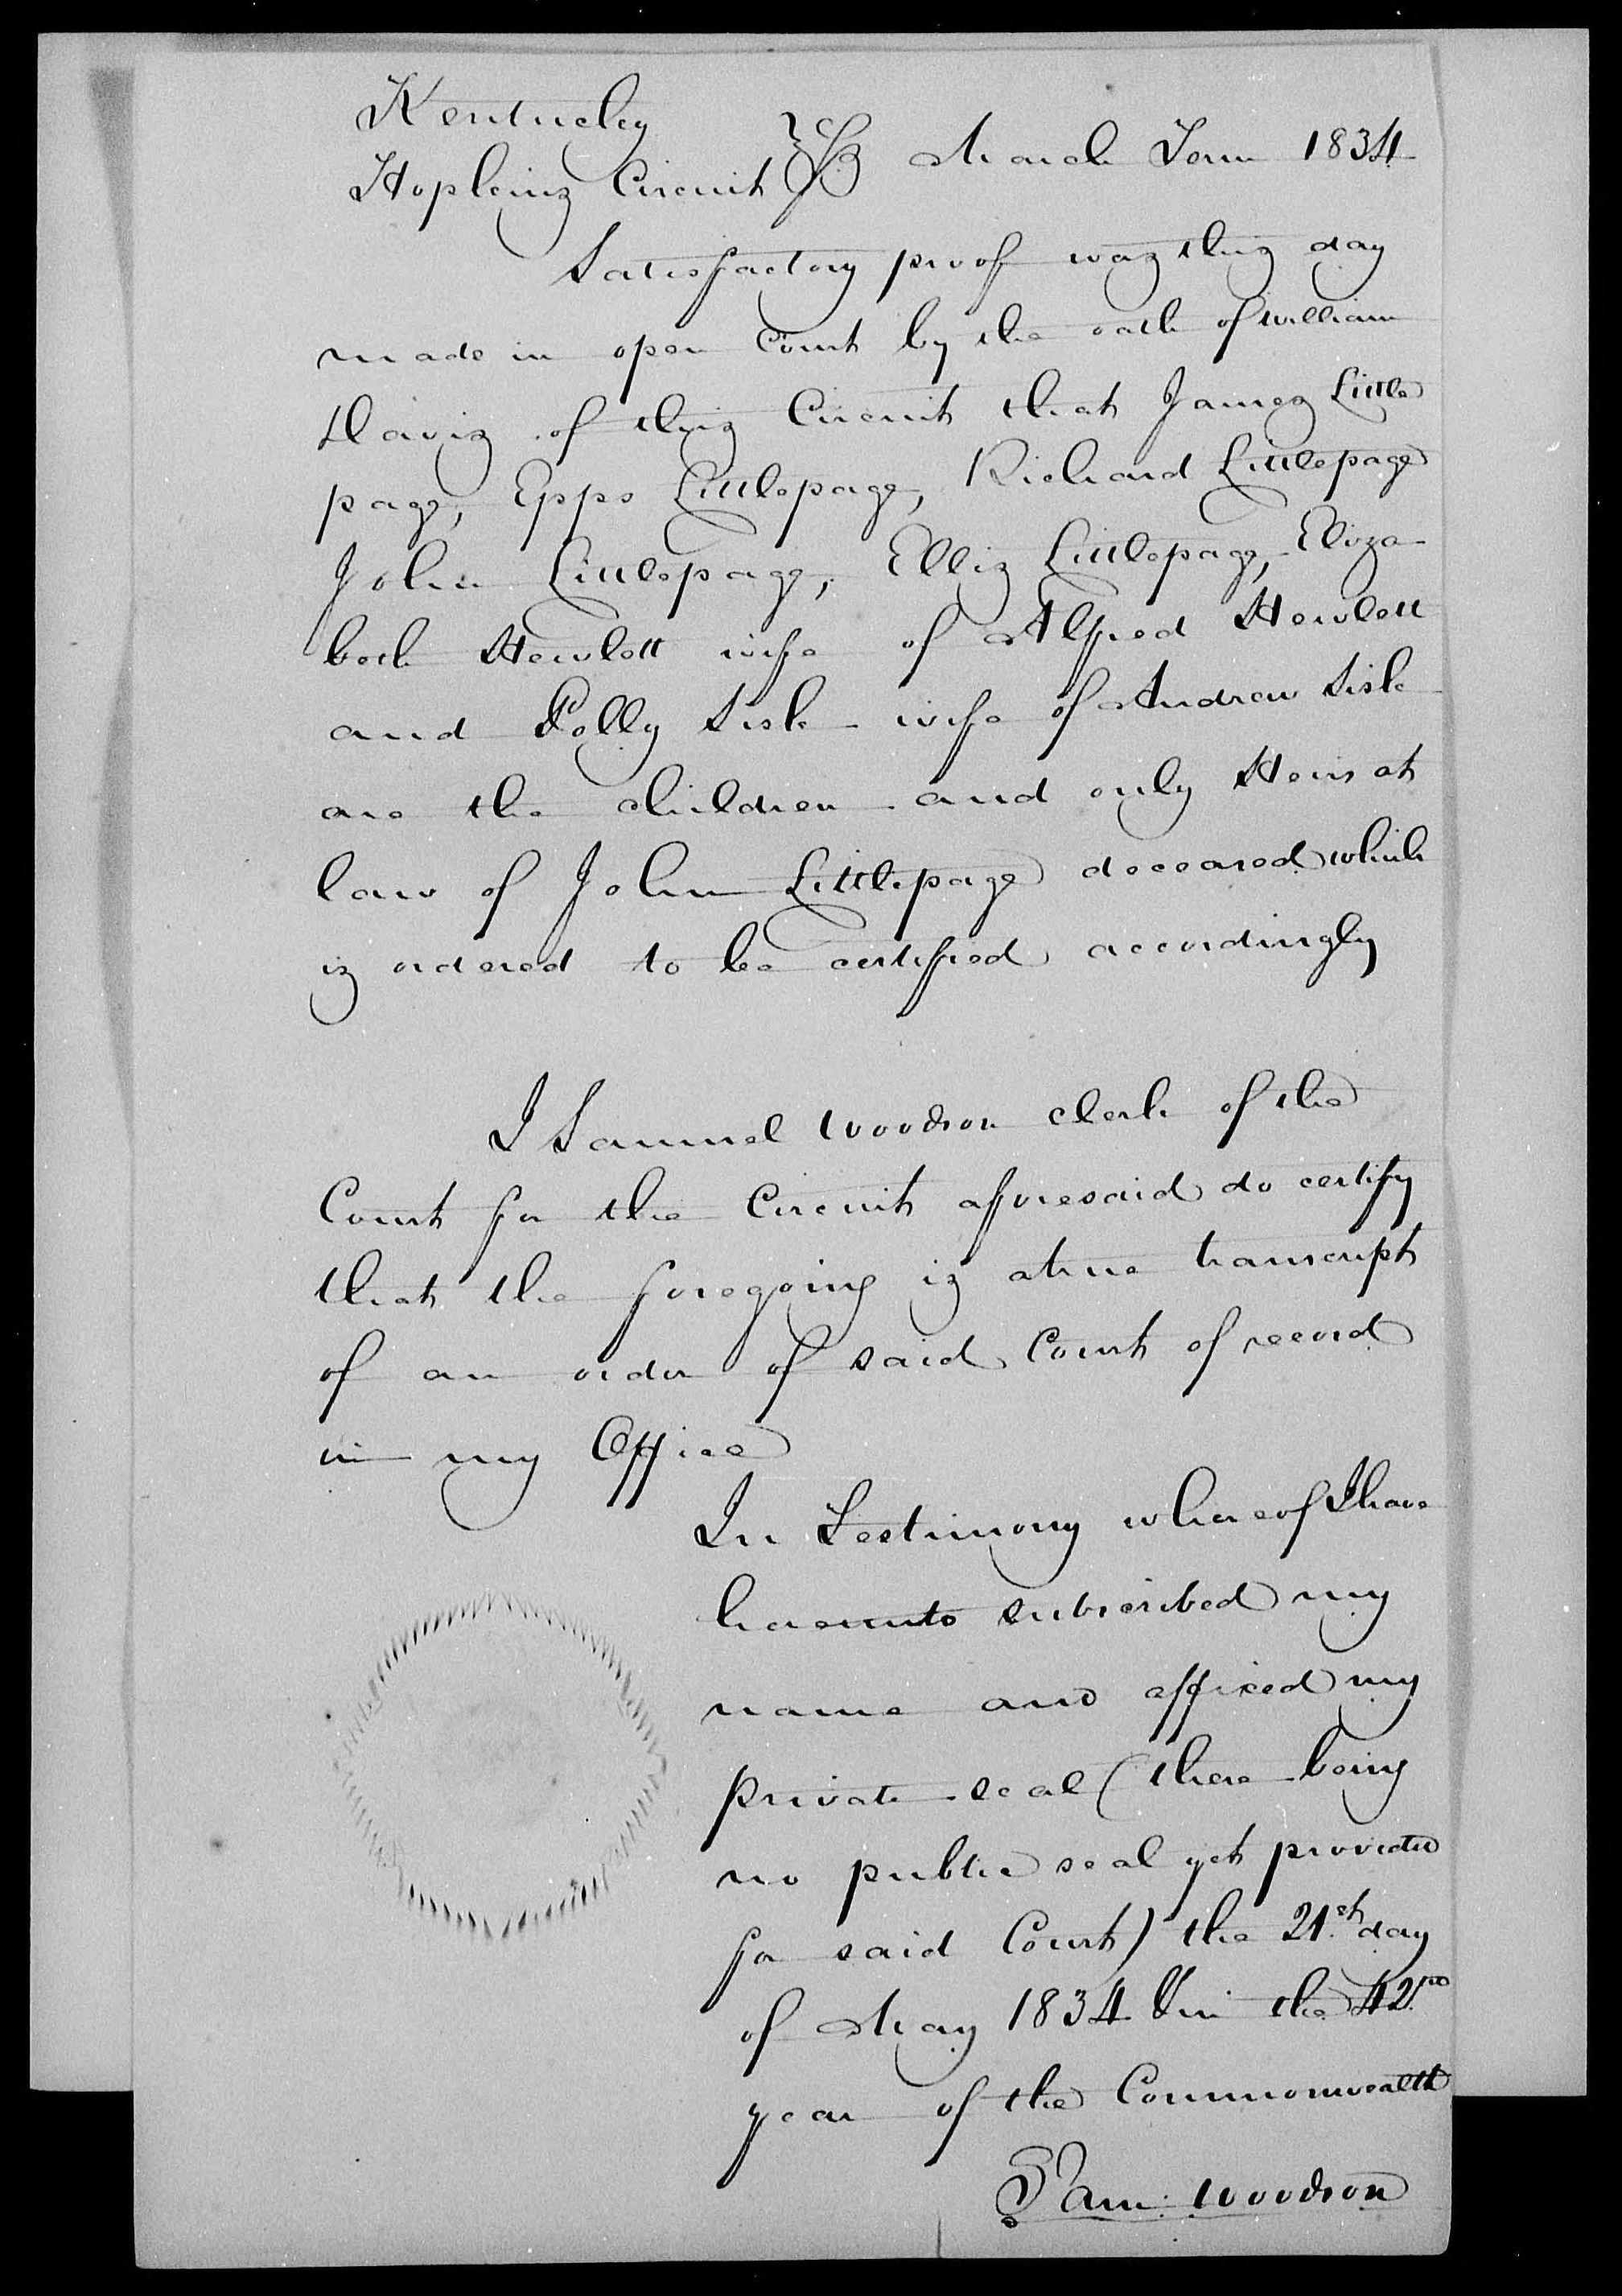 Kentucky
Hopkins Circuit } Sct March Term 1834
Satisfactory proof was this day
made in open Court by the oath of William
Davis of this Circuit that James Little
page, Epps Littlepage, Richard Littlepage
John Littlepage, Ellis Littlepage, Eliza
beth Hewlett wife of Alfred Hewlett
and Polly Sisk wife of Andrew Sisk
are the children and only Heirs at
law of John Littlepage deceased which
is ordered to be certified accordingly
I Samuel Woodson clerk of the
Court for the Circuit aforesaid do certify
that the foregoing is a true transcript
of an order of said Court of record
in my Office
In Testimony whereof I have
hereunto subscribed my
name and affixed my
private seal (there being
no public seal yet provided
for said Court) the 21st day
of May 1834 & in the 42nd
year of the Commonwealth
Sam. Woodson